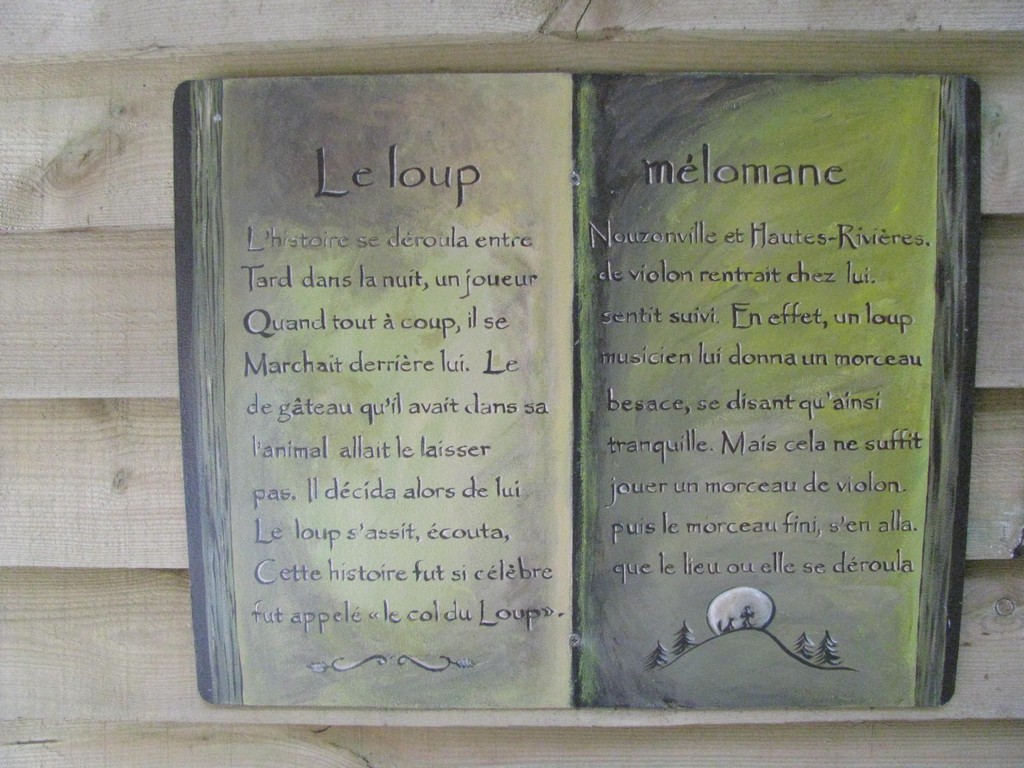 Le loup mélomane
L'histoire se déroula entre Nouzonville et Hautes-Rivières.
Tard dans la nuit, un joueur de violon rentrait chez lui.
Quand tout à coup, il se sentit suivi. En effet, un loup
Marchait derrière lui. Le musicien lui donna un morceau
de gâteau qu'il avait dans sa besace, se disant qu'ainsi
l'animal allait le laisser tranquille. Mais cela ne suffit
pas. Il décida alors de lui jouer un morceau de violon.
Le loup s'assit, écouta, puis le morceau fini, s'en alla.
Cette histoire fut si célèbre que le lieu ou elle se déroula
fut appelé «le col du Loup».